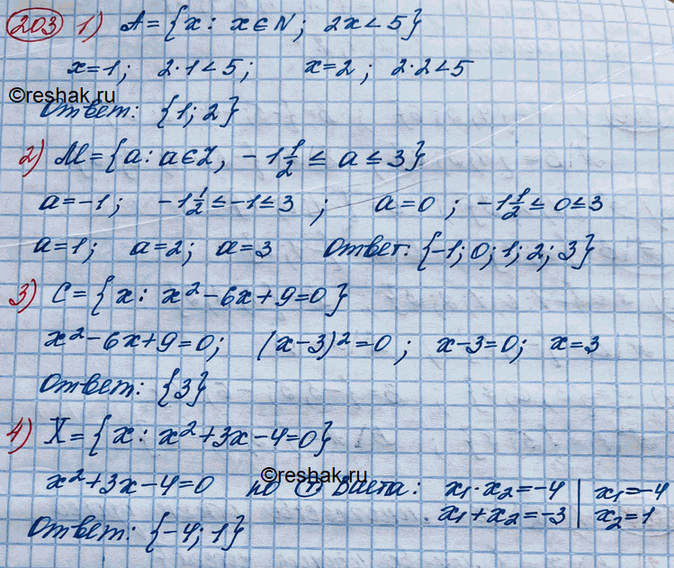 203 1) A={x: x∈N; 2x<5}
x=1; 2·1<5; x=2; 2·2<5
©reshak.ru
Ответ: {1; 2}
2) M={a: a∈Z, -1 1/2 ≤ a ≤ 3}
a=-1; -1 1/2 ≤ -1 ≤ 3; a=0; -1 1/2 ≤ 0 ≤ 3
a=1; a=2; a=3 Ответ: {-1; 0; 1; 2; 3}
3) C={x: x²-6x+9=0}
x²-6x+9=0; (x-3)²=0; x-3=0; x=3
Ответ: {3}
4) X={x: x²+3x-4=0}
©reshak.ru
x²+3x-4=0 по Т Виета: x₁·x₂=-4 | x₁=-4
x₁+x₂=-3 | x₂=1
Ответ: {-4; 1}